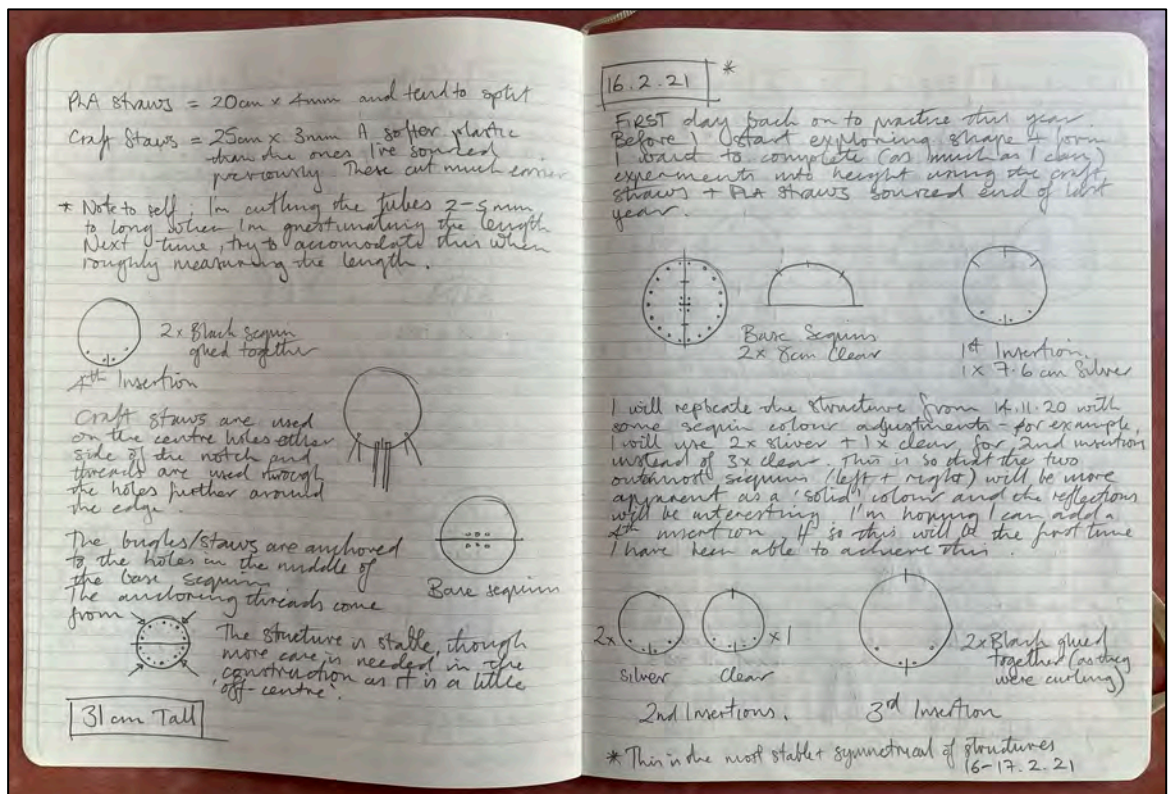 PLA Straws = 20cm x 4mm and tend to split
Craft Staws = 25cm x 3mm A softer plastic
than the ones I've sourced
previously. These cut much easier
* Note to self : I'm cutting the tubes 2-5mm
to long when I'm guestimating the length
Next time, try to accomodate this when
roughly measuring the length.
2x Black sequin
glued together
4th Insertion
Craft staws are used
on the centre holes either
side of the notch and
threads are used through
the holes further around
the edge.
The bugles/staws are anchored
to the holes in the middle of
the base sequin
The anchoring threads come
from
Base sequins
The structure is stable, though
more care is needed in the
construction as it is a little
'off-centre'.
31cm Tall
16.2.21 *
FIRST day back on to practice this year.
Before I start exploring shape + form
I want to complete (as much as I can)
experiments into height using the craft
straws + PLA straws sourced end of last
year.
Base Sequins
2x 8cm Clear
1st Insertion
1x 7.6cm Silver
I will replicate the structure from 14.11.20 with
some sequin colour adjustments - for example,
I will use 2x sliver + 1x clear for 2nd insertion
instead of 3x clear. This is so that the two
outermost sequins (left + right) will be more
apparent as a 'solid' colour and the reflections
will be interesting. I'm hoping I can add a
4th insertion. If so this will be the first time
I have been able to achieve this.
2x
silver
x1
clear
2nd Insertions.
2x Black glued
together (as they
were curling)
3rd Insertion
* This is the most stable + symmetrical of structures
16-17.2.21